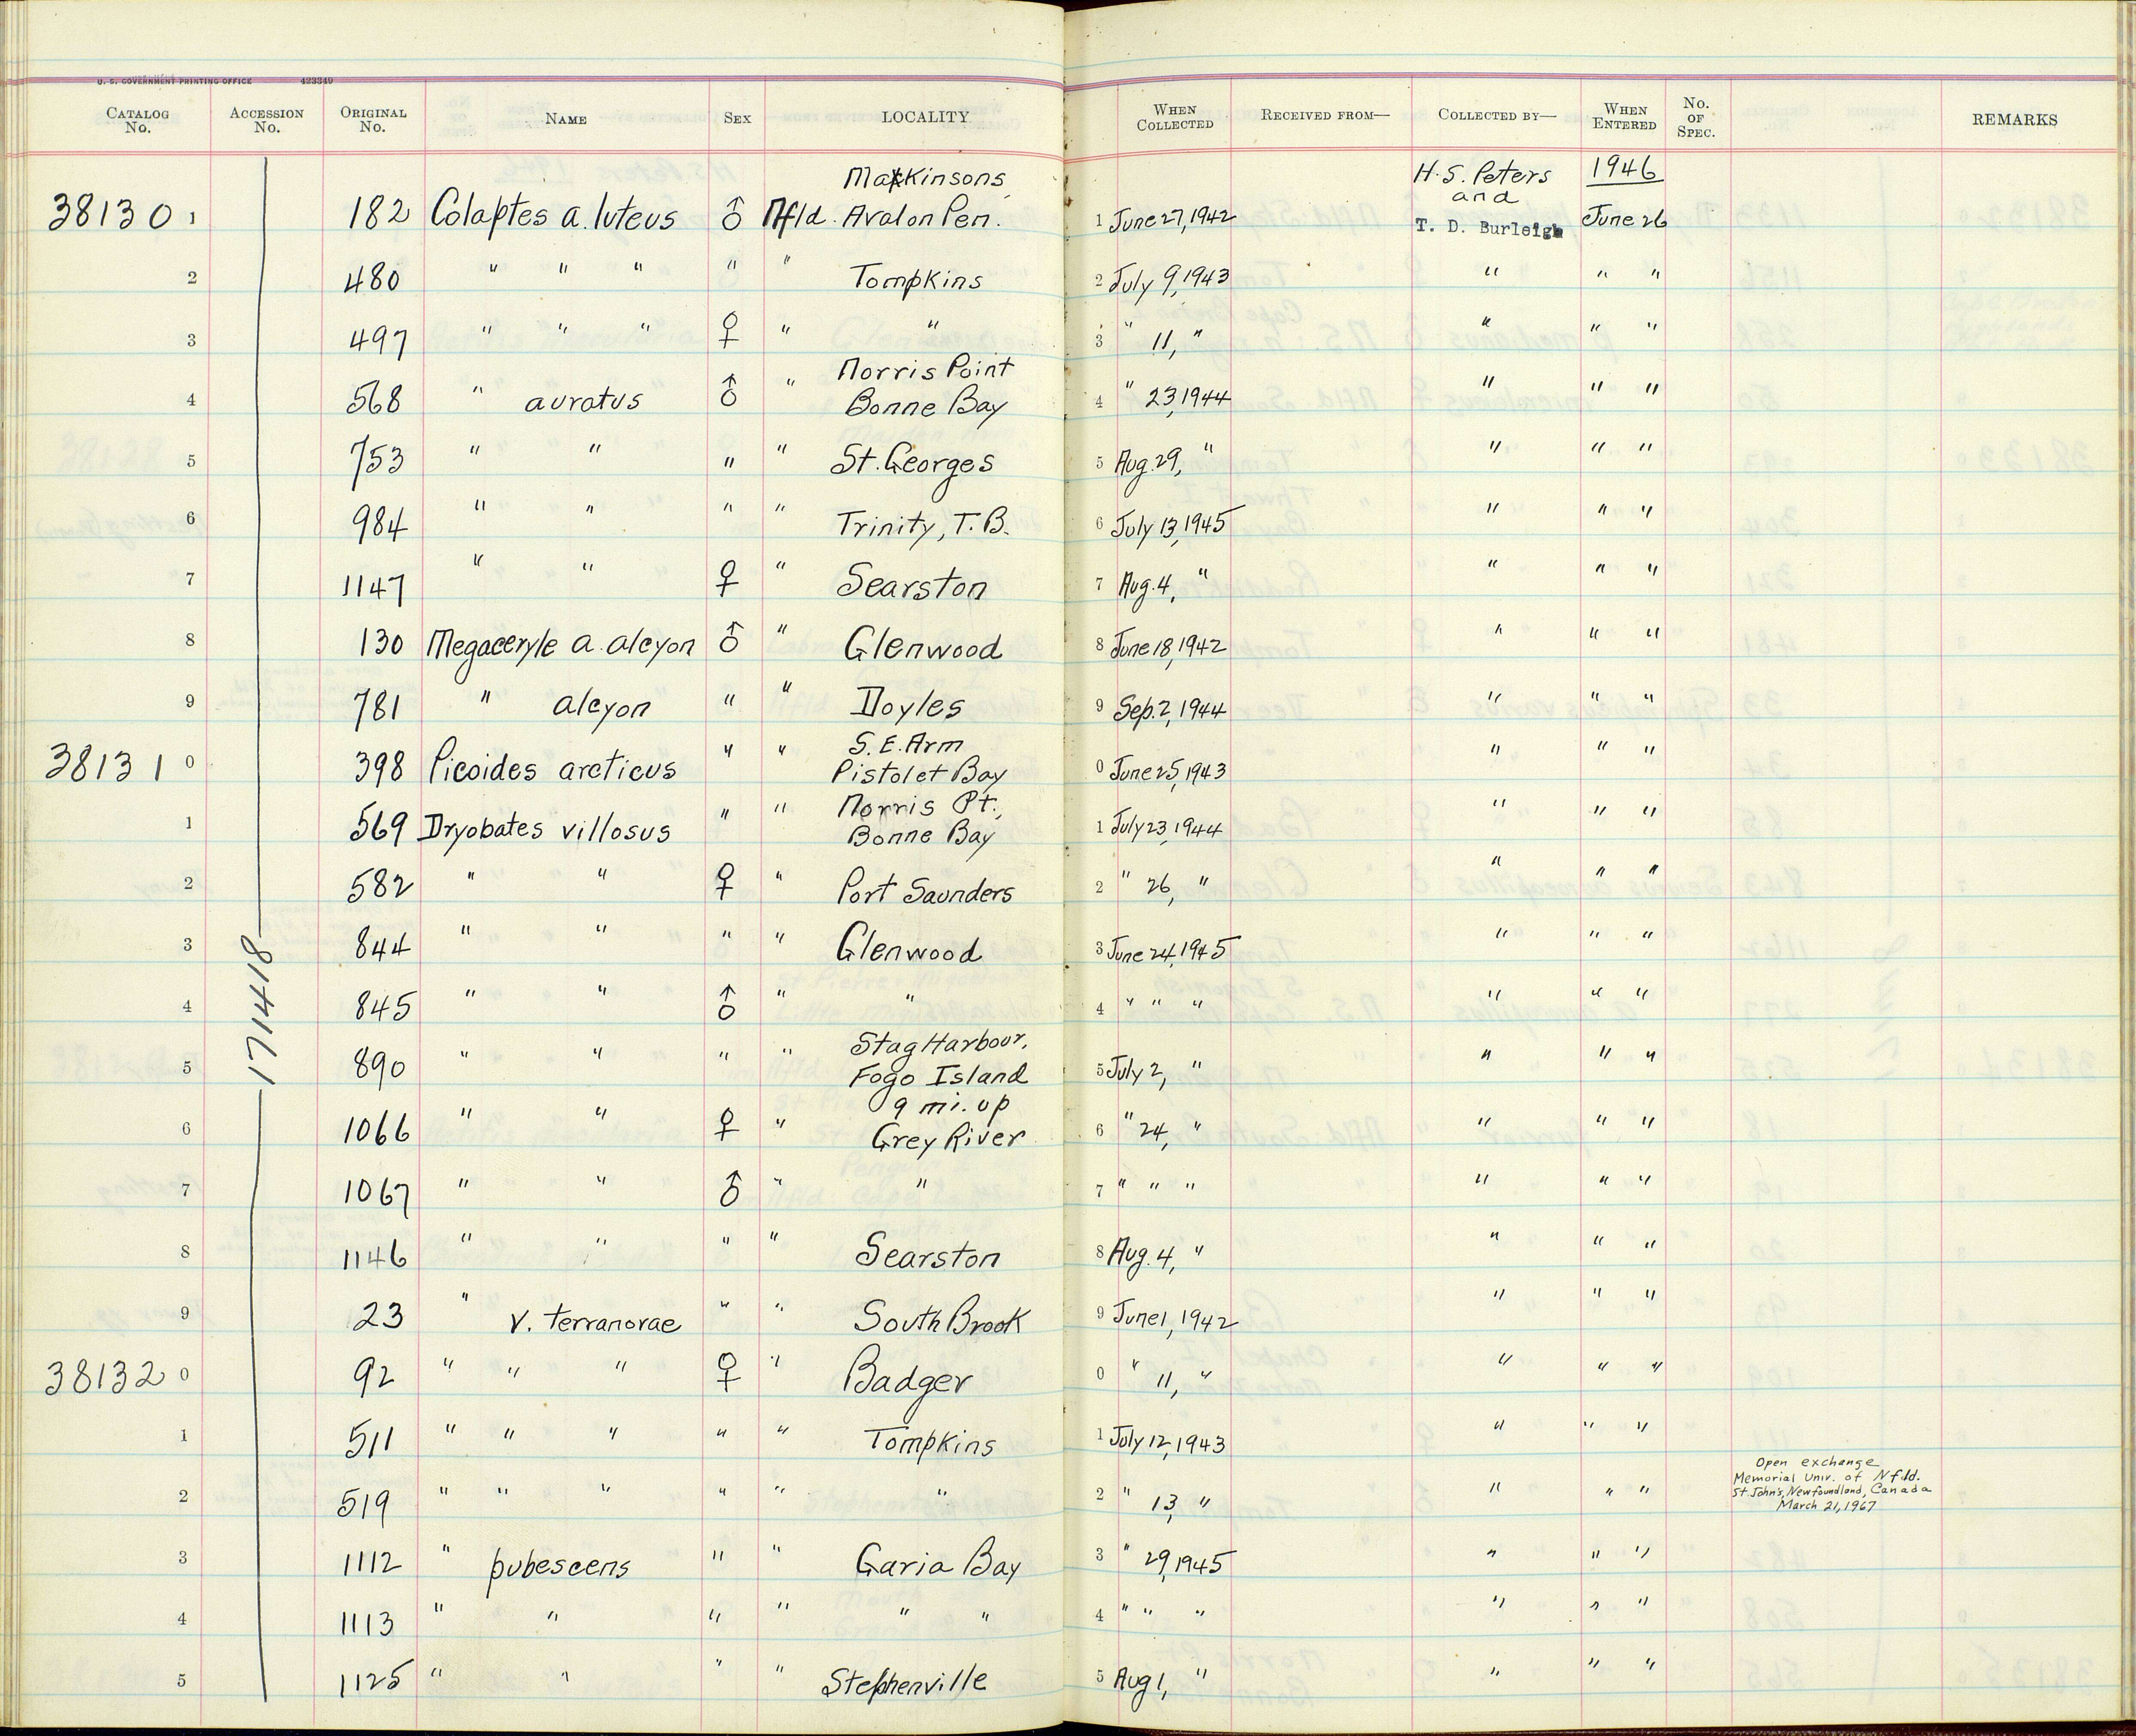 U. S. GOVERNMENT PRINTING OFFICE 423349
CATALOG No. ACCESSION No. ORIGINAL No. NAME SEX LOCALITY WHEN COLLECTED RECEIVED FROM— COLLECTED BY— WHEN ENTERED No. OF SPEC. REMARKS
Makinsons H. S. Peters 1946
and
38130 1 182 Colaptes a. luteus ♂ Nfld. Avalon Pen. 1 June 27, 1942 T. D. Burleigh June 26
2 480 " " " " " Tompkins 2 July 9, 1943 " " "
3 497 " " " ♀ " " 3 " 11, " " " "
Norris Point
4 568 " auratus ♂ " Bonne Bay 4 " 23, 1944 " " "
5 753 " " " " St. Georges 5 Aug. 29, " " " "
6 984 " " " " Trinity, T. B. 6 July 13, 1945 " " "
7 1147 " " ♀ " Searston 7 Aug. 4, " " " "
8 130 Megaceryle a. alcyon ♂ " Glenwood 8 June 18, 1942 " " "
9 781 " alcyon " " Doyles 9 Sep. 2, 1944 " " "
S. E. Arm
38131 0 398 Picoides arcticus " " Pistolet Bay 0 June 25, 1943 " " "
Norris Pt.,
1 569 Dryobates villosus " " Bonne Bay 1 July 23, 1944 " " "
2 582 " " ♀ " Port Saunders 2 " 26, " " " "
3 844 " " " " Glenwood 3 June 24, 1945 " " "
171418
4 845 " " ♂ " " 4 " " " " " "
Stag Harbour,
5 890 " " " " Fogo Island 5 July 2, " " " "
9 mi. up
6 1066 " " ♀ " Grey River 6 " 24, " " " "
7 1067 " " ♂ " " 7 " " " " " "
8 1146 " " " " Searston 8 Aug. 4, " " " "
9 23 " v. terranovae " " South Brook 9 June 1, 1942 " " "
38132 0 92 " " " ♀ " Badger 0 " 11, " " " "
1 511 " " " " " Tompkins 1 July 12, 1943 " " "
Open exchange
Memorial Univ. of Nfld.
2 519 " " " " " " 2 " 13, " " " " St. John's, Newfoundland, Canada
March 21, 1967
3 1112 " pubescens " " Garia Bay 3 " 29, 1945 " " "
4 1113 " " " " " " 4 " " " " " "
5 1125 " " " " Stephenville 5 Aug 1, " " " "